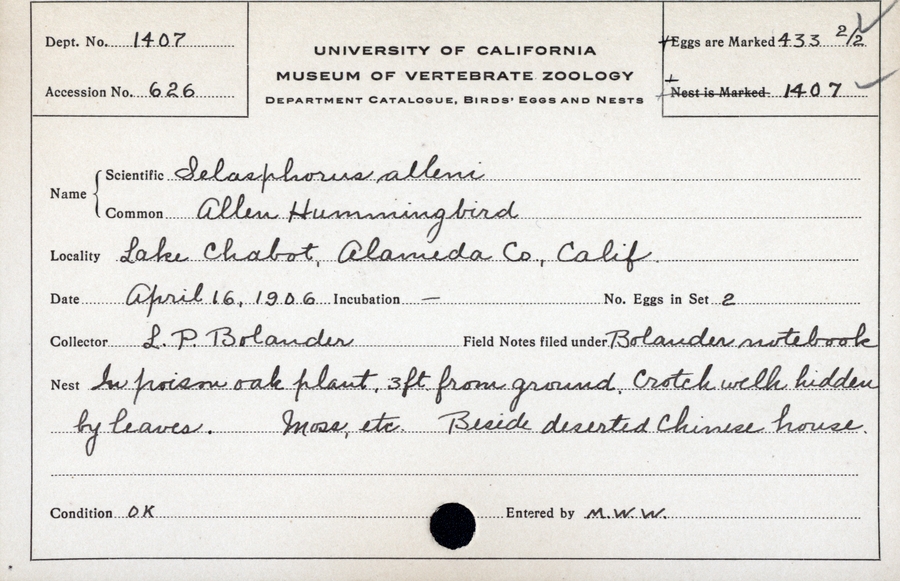 Dept. No. 1407
Accession No. 626
UNIVERSITY OF CALIFORNIA
MUSEUM OF VERTEBRATE ZOOLOGY
DEPARTMENT CATALOGUE, BIRDS' EGGS AND NESTS
Eggs are Marked 433 2/2
Nest is Marked 1407
Name
Scientific Selasphorus alleni
Common Allen Hummingbird
Locality Lake Chabot, Alameda Co., Calif.
Date April 16, 1906 Incubation — No. Eggs in Set 2
Collector L. P. Bolander Field Notes filed under Bolander notebook
Nest In poison oak plant, 3ft from ground. Crotch well hidden
by leaves. Moss, etc. Beside deserted Chinese house.
Condition OK Entered by M.W.W.